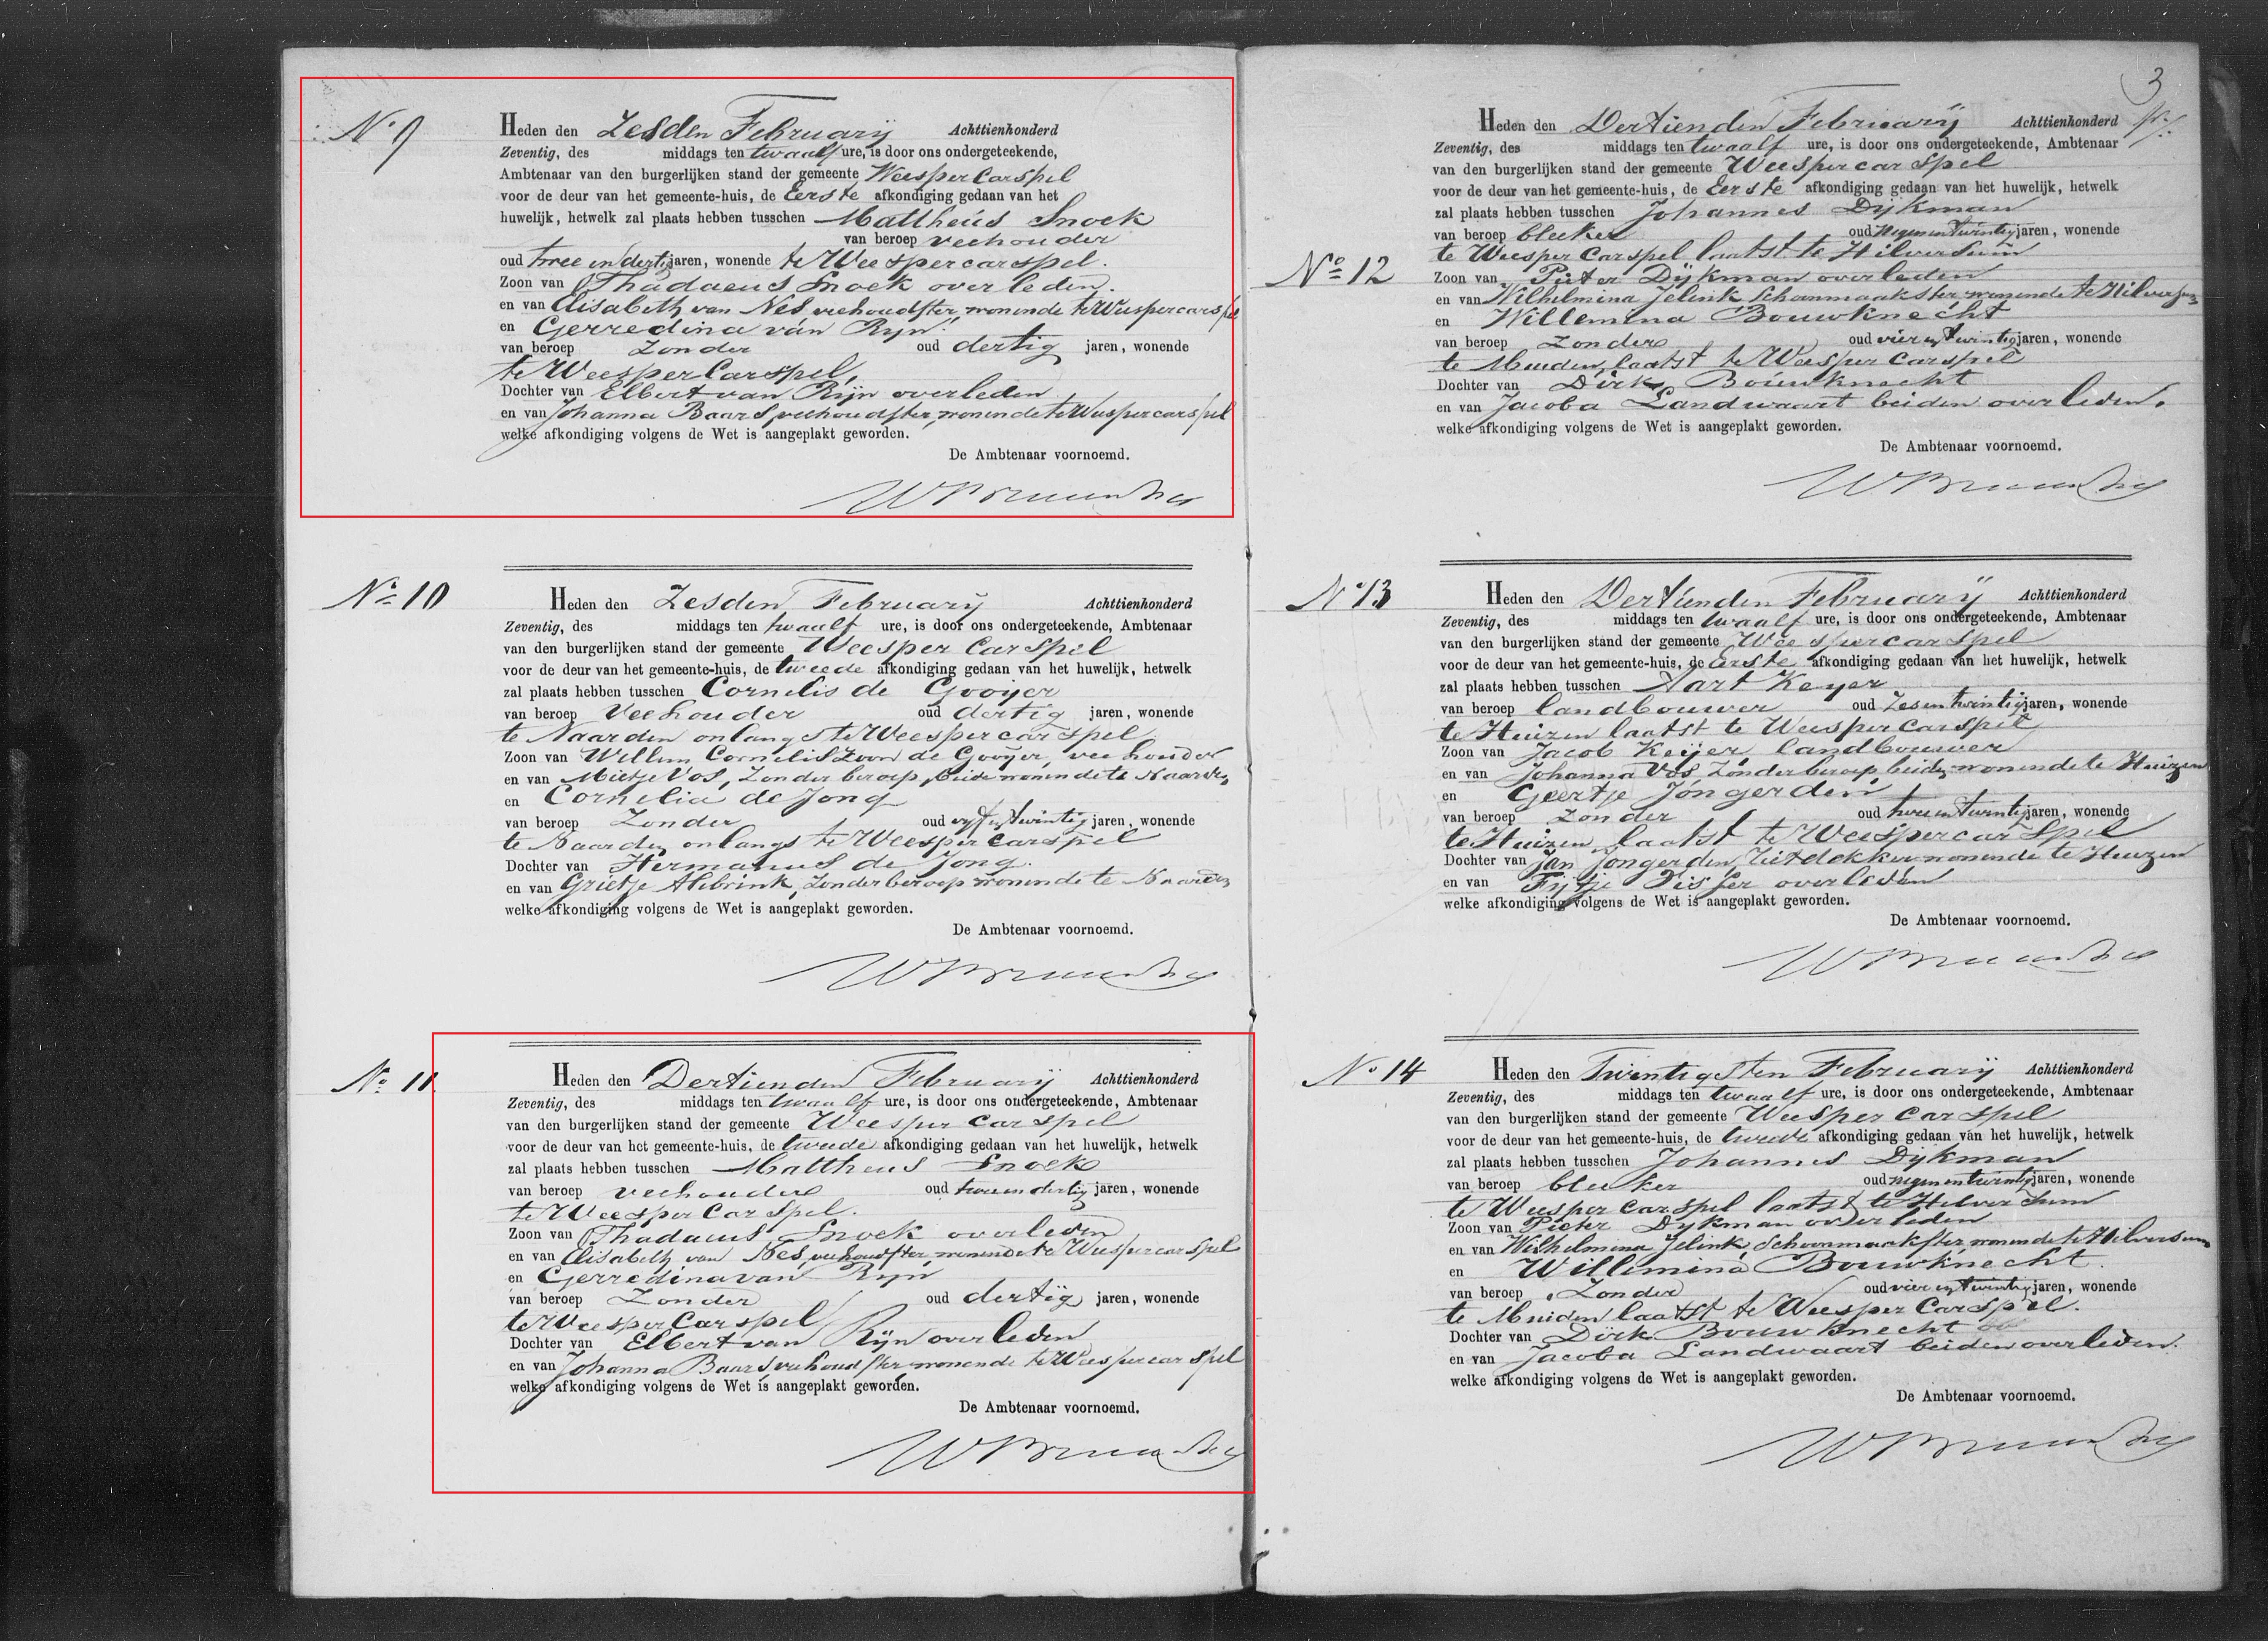 No 9
Heden den Zesden February Achttienhonderd
Zeventig, des middags ten twaalf ure, is door ons ondergeteekende,
Ambtenaar van den burgerlijken stand der gemeente Weesper Carspel
voor de deur van het gemeente-huis, de Eerste afkondiging gedaan van het
huwelijk, hetwelk zal plaats hebben tusschen Mattheus Snoek
van beroep veehouder
oud twee en dertig jaren, wonende te Weespercarspel.
Zoon van Thadaeus Snoek overleden.
en van Elisabeth van Nes veehoudster, wonende te Weespercarspel
en Gerredina van Ryn.
van beroep Zonder oud dertig jaren, wonende
te Weesper Carspel,
Dochter van Elbert van Rijn overleden
en van Johanna Baars, veehoudster, wonende te Weespercarspel
welke afkondiging volgens de Wet is aangeplakt geworden.
De Ambtenaar voornoemd.
No 10
Heden den Zesden February Achttienhonderd
Zeventig, des middags ten twaalf ure, is door ons ondergeteekende, Ambtenaar
van den burgerlijken stand der gemeente Weesper Carspel
voor de deur van het gemeente-huis, de tweede afkondiging gedaan van het huwelijk, hetwelk
zal plaats hebben tusschen Cornelis de Gooijer
van beroep Veehouder oud dertig jaren, wonende
te Naarden onlangs te Weespercarspel
Zoon van Willem Corneliszoon de Gooijer, veehouder
en van Mietje Vos, Zonder beroep, beide wonende te Naarden
en Cornelia de Jong
van beroep Zonder oud vyf en twintig jaren, wonende
te Naarden onlangs te Weesper Carspel
Dochter van Hermanus de Jong.
en van Grietje Alebrink, Zonder beroep wonende te Naarden
welke afkondiging volgens de Wet is aangeplakt geworden.
De Ambtenaar voornoemd.
No 11.
Heden den Dertienden February Achttienhonderd
Zeventig, des middags ten twaalf ure, is door ons ondergeteekende, Ambtenaar
van den burgerlijken stand der gemeente Weesper Carspel
voor de deur van het gemeente-huis, de tweede afkondiging gedaan van het huwelijk, hetwelk
zal plaats hebben tusschen Mattheus Snoek
van beroep veehouder oud twee en dertig jaren, wonende
te Weesper Carspel.
Zoon van Thadaeus Snoek overleden
en van Elisabeth van Nes, veehoudster, wonende te Weespercarspel
en Gerredina van Ryn
van beroep Zonder oud dertig jaren, wonende
te Weesper Carspel
Dochter van Elbert van Rijn overleden
en van Johanna Baars veehoudster wonende te Weespercarspel
welke afkondiging volgens de Wet is aangeplakt geworden.
De Ambtenaar voornoemd.
3
Heden den Dertienden February Achttienhonderd
Zeventig, des middags ten twaalf ure, is door ons ondergeteekende, Ambtenaar
van den burgerlijken stand der gemeente Weespercarspel
voor de deur van het gemeente-huis, de Eerste afkondiging gedaan van het huwelijk, hetwelk
zal plaats hebben tusschen Johannes Dijkman
van beroep bleeker oud Negen en twintig jaren, wonende
te Weesper Carspel laatst te Hilversum
No 12
Zoon van Pieter Dijkman overleden
en van Wilhelmina Jelink Schoonmaakster wonende te Hilversum
en Willemina Bouwknecht
van beroep Zonder oud vier en twintig jaren, wonende
te Muiden, laatst te Weesper Carspel
Dochter van Dirk Bouwknecht
en van Jacoba Landwaart beiden overleden.
welke afkondiging volgens de Wet is aangeplakt geworden.
De Ambtenaar voornoemd.
No 13
Heden den Dertienden February Achttienhonderd
Zeventig, des middags ten twaalf ure, is door ons ondergeteekende, Ambtenaar
van den burgerlijken stand der gemeente Weespercarspel
voor de deur van het gemeente-huis, de Eerste afkondiging gedaan van het huwelijk, hetwelk
zal plaats hebben tusschen Aart Keyer
van beroep landbouwer oud Zes en twintig jaren, wonende
te Huizen laatst te Weesper Carspel
Zoon van Jacob Keijer, landbouwer
en van Johanna Vos Zonder beroep beide wonende te Huizen
en Geertje Jongerden
van beroep Zonder oud twee en twintig jaren, wonende
te Huizen laatst te Weespercarspel
Dochter van Jan Jongerden, rietdekker wonende te Huizen
en van Fijtje Visser overleden
welke afkondiging volgens de Wet is aangeplakt geworden.
De Ambtenaar voornoemd.
No 14
Heden den Twintigsten February Achttienhonderd
Zeventig, des middags ten twaalf ure, is door ons ondergeteekende, Ambtenaar
van den burgerlijken stand der gemeente Weesper Carspel
voor de deur van het gemeente-huis, de tweede afkondiging gedaan van het huwelijk, hetwelk
zal plaats hebben tusschen Johannes Dijkman
van beroep bleeker oud negen en twintig jaren, wonende
te Weesper Carspel laatst te Hilversum
Zoon van Pieter Dykman overleden
en van Wilhelmina Jelink, Schoonmaakster wonende te Hilversum
en Willemina Bouwknecht.
van beroep Zonder oud vier en twintig jaren, wonende
te Muiden laatst te Weesper Carspel.
Dochter van Dirk Bouwknecht
en van Jacoba Landwaart beiden overleden.
welke afkondiging volgens de Wet is aangeplakt geworden.
De Ambtenaar voornoemd.